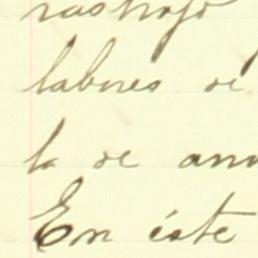 rastrojo
labores de
la de
En éste